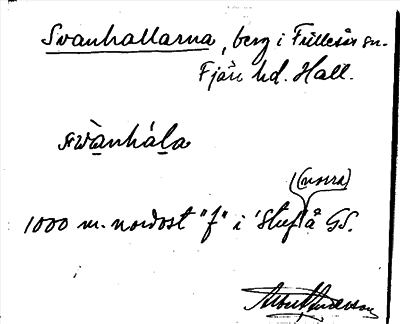 Svanhallarna, berg i Frillesås sn.
Fjäre hd. Hall.
swànhála
(norra)
1000 m. nordost "f" i "Stuf" å GS.
Albert Anderson